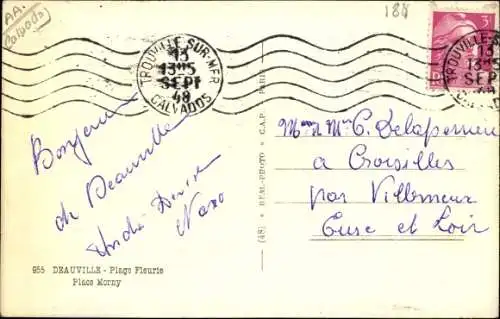 AA.
Calvados
188
TROUVILLE-SUR-MER
13
13H15
SEPT
48
CALVADOS
3F
TROUVILLE-S
13
13H15
SEP
48
Bonjour
de Deauville
André Denise
955 DEAUVILLE - Plage Fleurie
Place Morny
(48) REAL-PHOTO C.A.P. PARIS
à Croisilles
par Villemeux
Eure et Loir